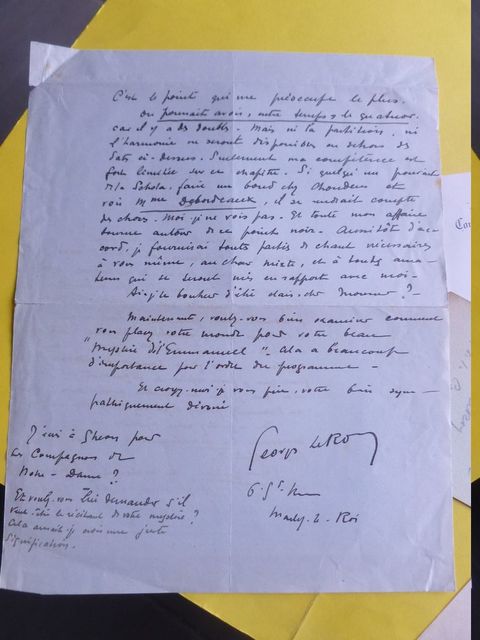 C'est le point qui me préoccupe le plus.
On pourrait avoir, notre temps, le quatuor
car il y a des doubles. Mais ni la partition, ni
l'harmonie ne seront disponibles en dehors des
dates ci-dessus. Seulement ma compétence est
fort limitée sur ce chapitre. Si quelqu'un pouvait
faire un bond chez Choudens et
voir Mme Debordeaux, il se rendrait compte
des choses. Moi je ne vois pas. Et toute mon affaire
tourne autour de ce point noir. Aussitôt d'ac-
cord, je fournirai toutes parties de chant nécessaires
à vous même, au chœur mixte, et à toutes
qui se seront mis en rapport avec moi.
Ai-je le bonheur d'être clair, cher Monsieur ?
Maintenant, voulez-vous bien examiner comment
vous placez votre monde pour votre beau
"Mystère de l'Emmanuel". Cela a beaucoup
d'importance pour l'ordre du programme -
Et croyez-moi je vous prie, votre bien sym-
pathiquement dévoué
Georges Le Roy
6 St
Marly-le-Roi
J'écris à Ghéon pour
les Compagnons de
Notre-Dame ?
Et voulez-vous lui demander s'il
veut être le récitant de votre mystère ?
Cela aurait je crois une juste
signification.